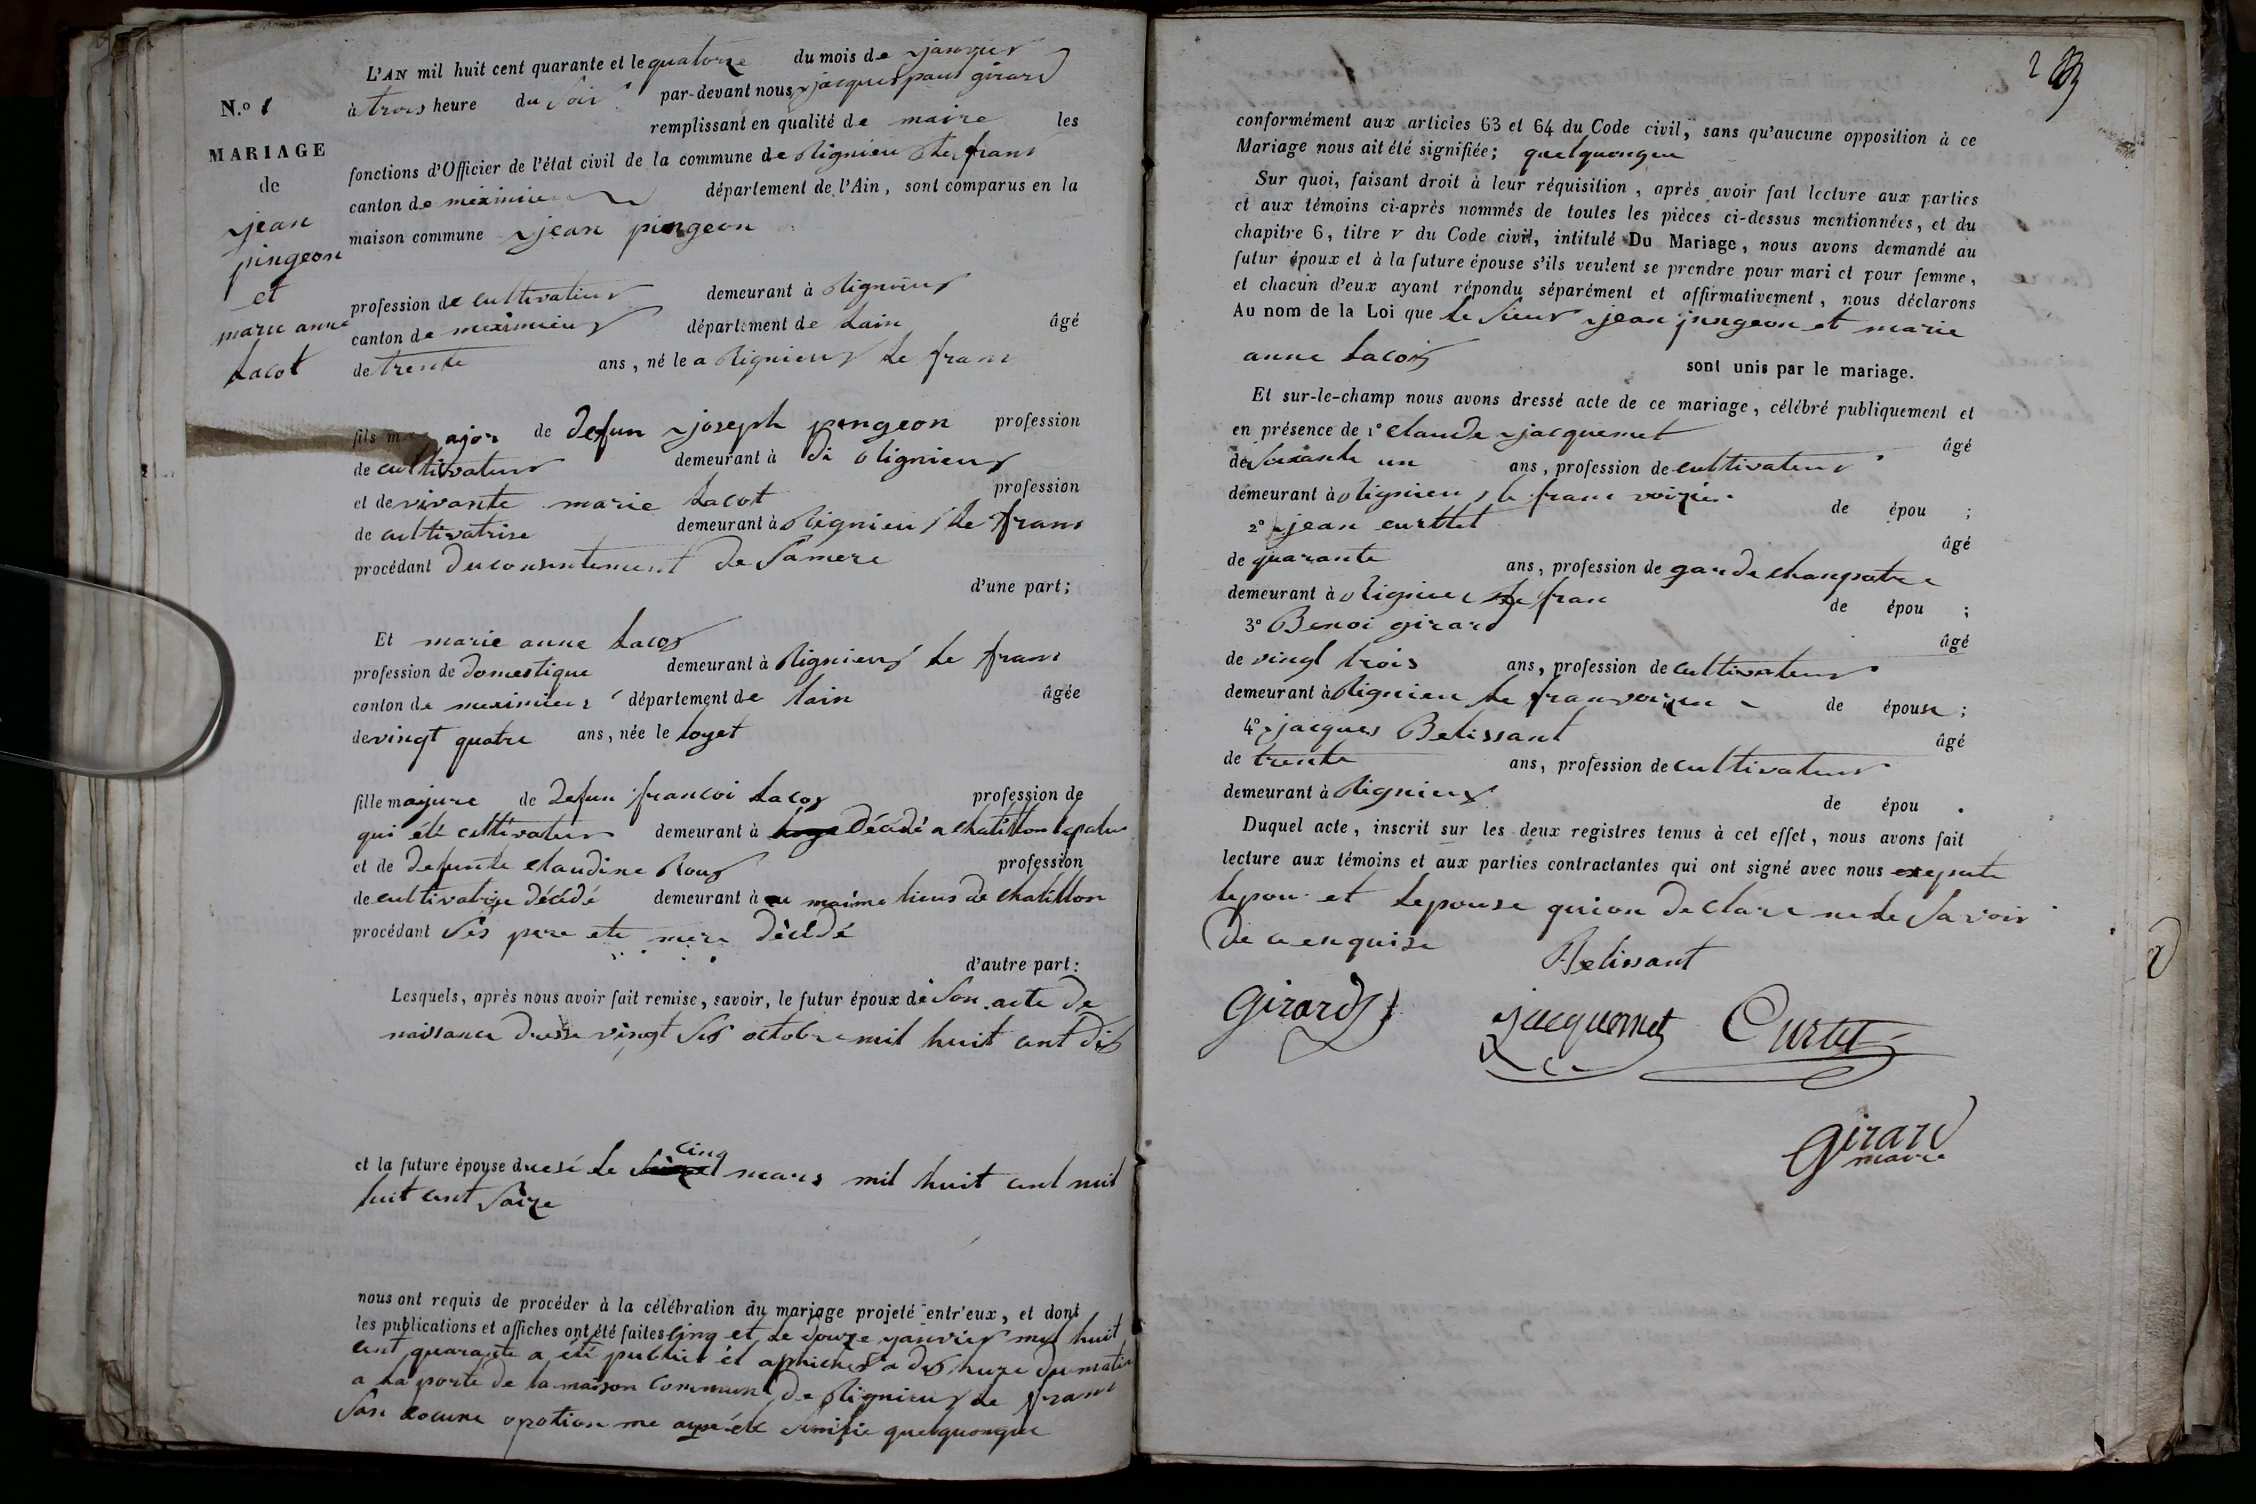 N.º 1
MARIAGE
de
jean
pingeon
et
marie anne
Lacot
L'AN mil huit cent quarante et le quatorze du mois de janvier
à trois heure du soir par-devant nous jacques paul girard
remplissant en qualité de maire les
fonctions d'Officier de l'état civil de la commune de Rignieu Le franc
canton de meximieu département de l'Ain, sont comparus en la
maison commune jean pingeon
profession de cultivateur demeurant à Rignieux
canton de meximieux département de Lain âgé
de trente ans, né le a Rignieux Le franc
fils major de defun joseph pingeon profession
de cultivateur demeurant à di Rignieux
et de vivante marie Lacot profession
de cultivatrise demeurant à Rignieux Le franc
procédant du consentement de Sa mere
d'une part;
Et marie anne Lacot
profession de domestique demeurant à Rignieux Le franc
canton de meximieux département de Lain âgée
de vingt quatre ans, née le Loyet
fille majure de defun francoi Lacot profession de
qui été cultivateur demeurant à Décédé a chatillon lapalue
et de defunte claudine Roux profession
de cultivatrise décédé demeurant à au maime lieux de chatillon
procédant Ses pere ete mere décédé
d'autre part:
Lesquels, après nous avoir fait remise, savoir, le futur époux de Son acte de
naissance dresse vingt Six octobre mil huit cent dix
et la future épouse duesé Le cinq mars mil huit cent mil
huit cent Saize
nous ont requis de procéder à la célébration du mariage projeté entr'eux, et dont
les publications et affiches ont été faites cinq et Le douze janvier mil huit
cent quarante a été publier et aphicher a dix heure du matin
a La porte de la maison commune de Rignieux Le franc
San aocune opotion me aye été Sinifie quelquonque
283
conformément aux articles 63 et 64 du Code civil, sans qu'aucune opposition à ce
Mariage nous ait été signifiée; quelquonque
Sur quoi, faisant droit à leur réquisition, après avoir fait lecture aux parties
et aux témoins ci-après nommés de toutes les pièces ci-dessus mentionnées, et du
chapitre 6, titre V du Code civil, intitulé Du Mariage, nous avons demandé au
futur époux et à la future épouse s'ils veulent se prendre pour mari et pour femme,
et chacun d'eux ayant répondu séparément et affirmativement, nous déclarons
Au nom de la Loi que Le Sieur jean pingeon et marie
anne Lacot
sont unis par le mariage.
Et sur-le-champ nous avons dressé acte de ce mariage, célébré publiquement et
en présence de 1º claude jacquemet âgé
de Soixante un ans, profession de cultivateur
demeurant à Rignieux le franc voizin de épou ;
2º jean curttet âgé
de quarante ans, profession de garde champatre
demeurant à Rignieu Le franc de épou ;
3º Benoi girard âgé
de vingt trois ans, profession de cultivateur
demeurant à Rignieu Le franc voizin de épouse ;
4º jacques Belissant âgé
de trente ans, profession de cultivateur
demeurant à Rignieux de épou .
Duquel acte, inscrit sur les deux registres tenus à cet effet, nous avons fait
lecture aux témoins et aux parties contractantes qui ont signé avec nous exepute
Lepou et Lepouse qui on declare ne Le Savoir
de ce enquise
Belissant
Girard
jacquemet
Curtet
Girard
maire